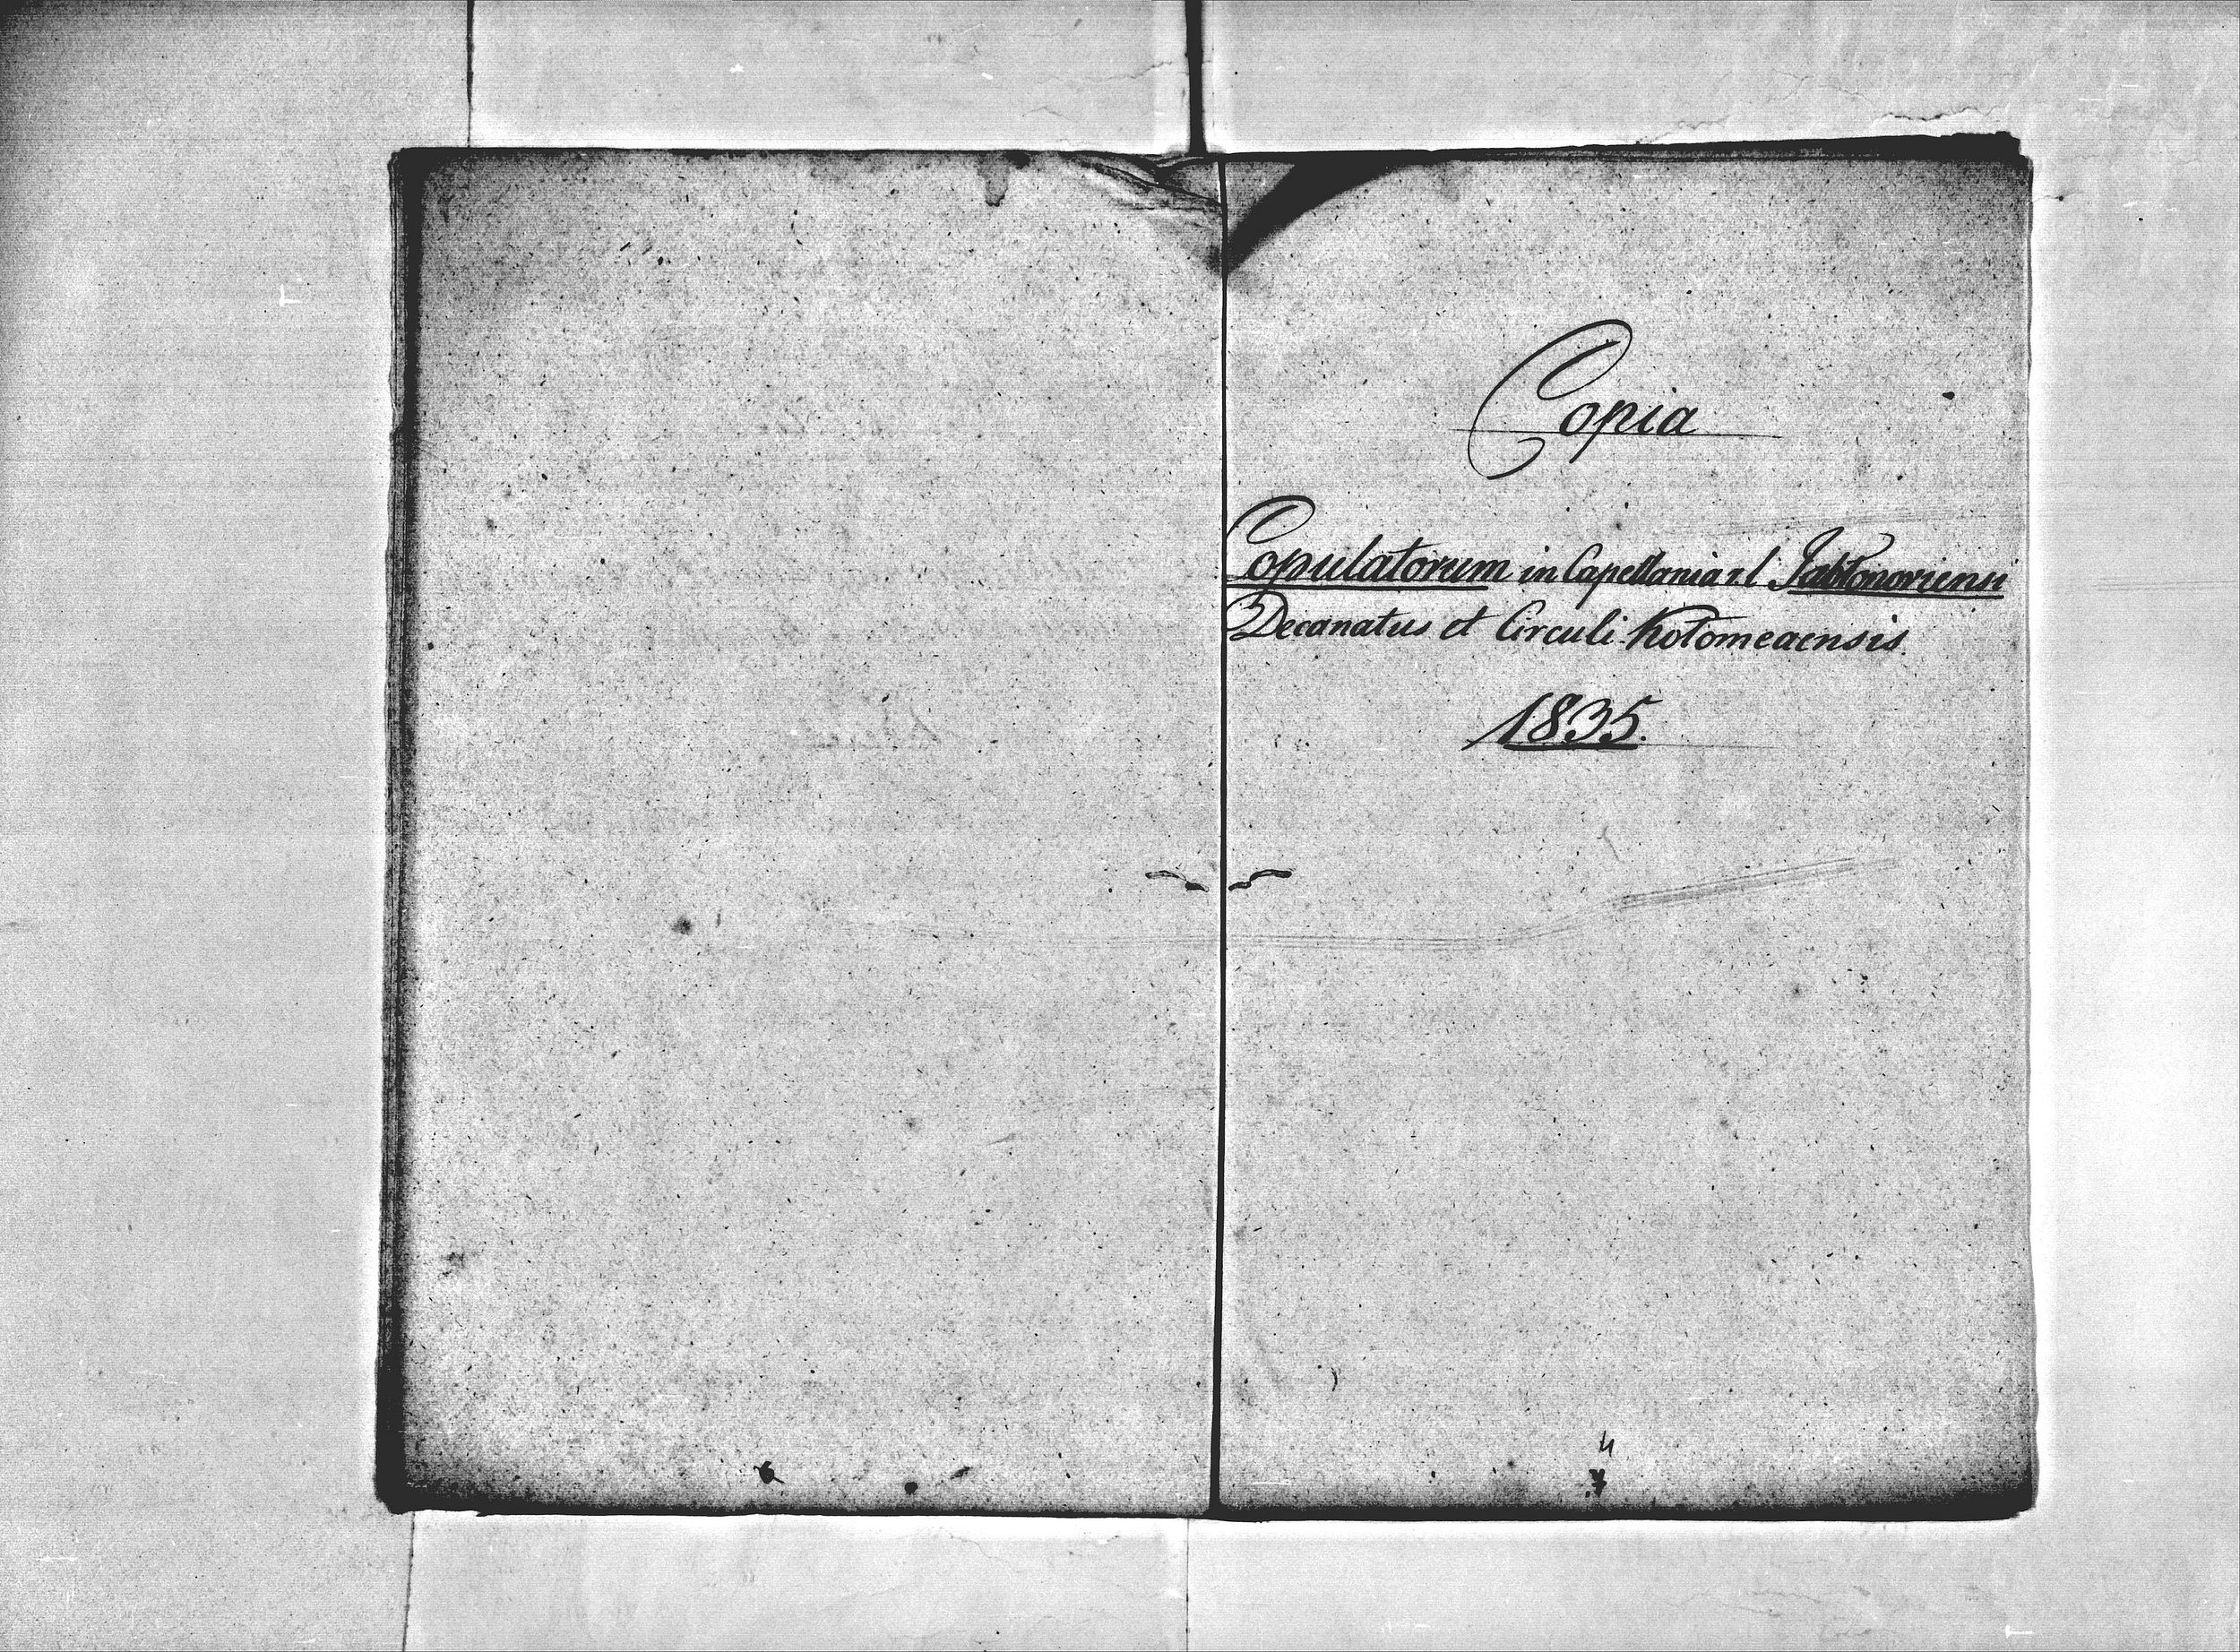 Copia
Copulatorum in Capellania r l Jabłonoviensi
Decanatus et Circuli Kołomeaensis.
1835.
4